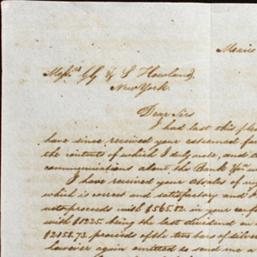 Mexico
Messrs G. G. & S. Howland,
New York.
Dear Sirs
I had last this
have since received your esteemed
the contents of which I duly note, and
communications about the Bank
I have received your
which is correct and satisfactory and
proceeds with $565.12 in your
with $1325 being the last dividend on
$2458.72 proceeds of the two bars of silver
again omitted to send me a